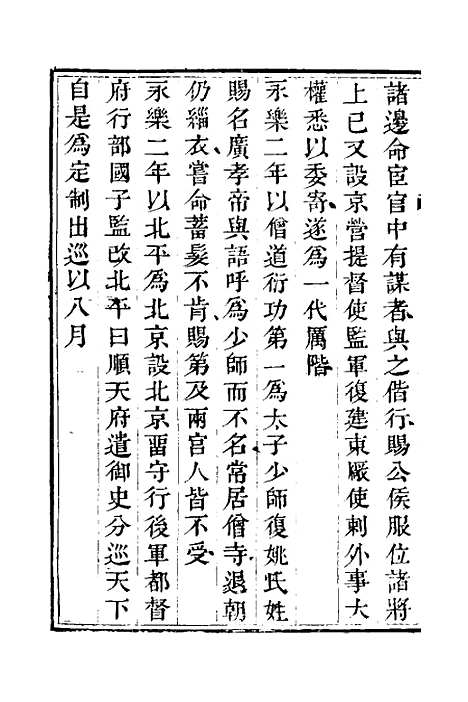 諸邊命宦官中有謀者與之偕行賜公侯服位諸將
上已又設京營提督使監軍復建東厰使刺外事大
權悉以委寄遂為一代厲階
永樂二年以僧道衍功第一為太子少師復姚氏姓
賜名廣孝帝與語呼為少師而不名常居僧寺退朝
仍緇衣嘗命蓄髮不肯賜第及兩宮人皆不受
永樂二年以北平為北京設北京畱守行後軍都督
府行部國子監改北平曰順天府遣御史分巡天下
自是為定制出巡以八月